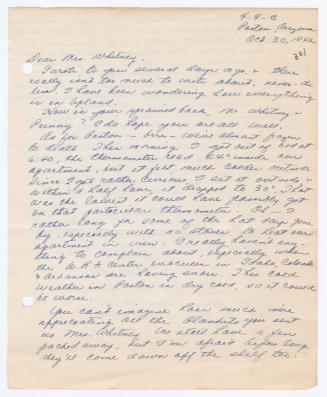 4. F. C
Poston Arizona
Oct. 30, 1942
201
Dear Mrs. Whitney,
I wrote to you several days ago, & there
really isn't too much to write about, never-the-
less, I have been wondering how everything
is in Upland.
How is your sprained back, Mr. Whitney &
Penny? I do hope you are all well.
As for Poston — brr — we're almost frozen
to death. This morning I got out of bed at
6:40, the thermometer read 64° inside our
apartment, but it felt much colder outside
Since I got rather curious I set it outside &
within a half hour, it dropped to 30°. That
was the lowest it could have possibly got
on that particular thermometer. Oh — I
rather long for some of the hot days gone
by, especially with no stoves to heat our
apartment in view. I really haven't any-
thing to complain about, especially when
the W.R.A. Center evacuees in Idaho, Colorado
& Arkansas are having snow. This cold
weather in Poston is dry cold, so it could
be worse.
You can't imagine how much we're
appreciating all the blankets you sent
us Mrs. Whitney. We still have a few
packed away, but I'm afraid before long
they'll come down off the shelf too.